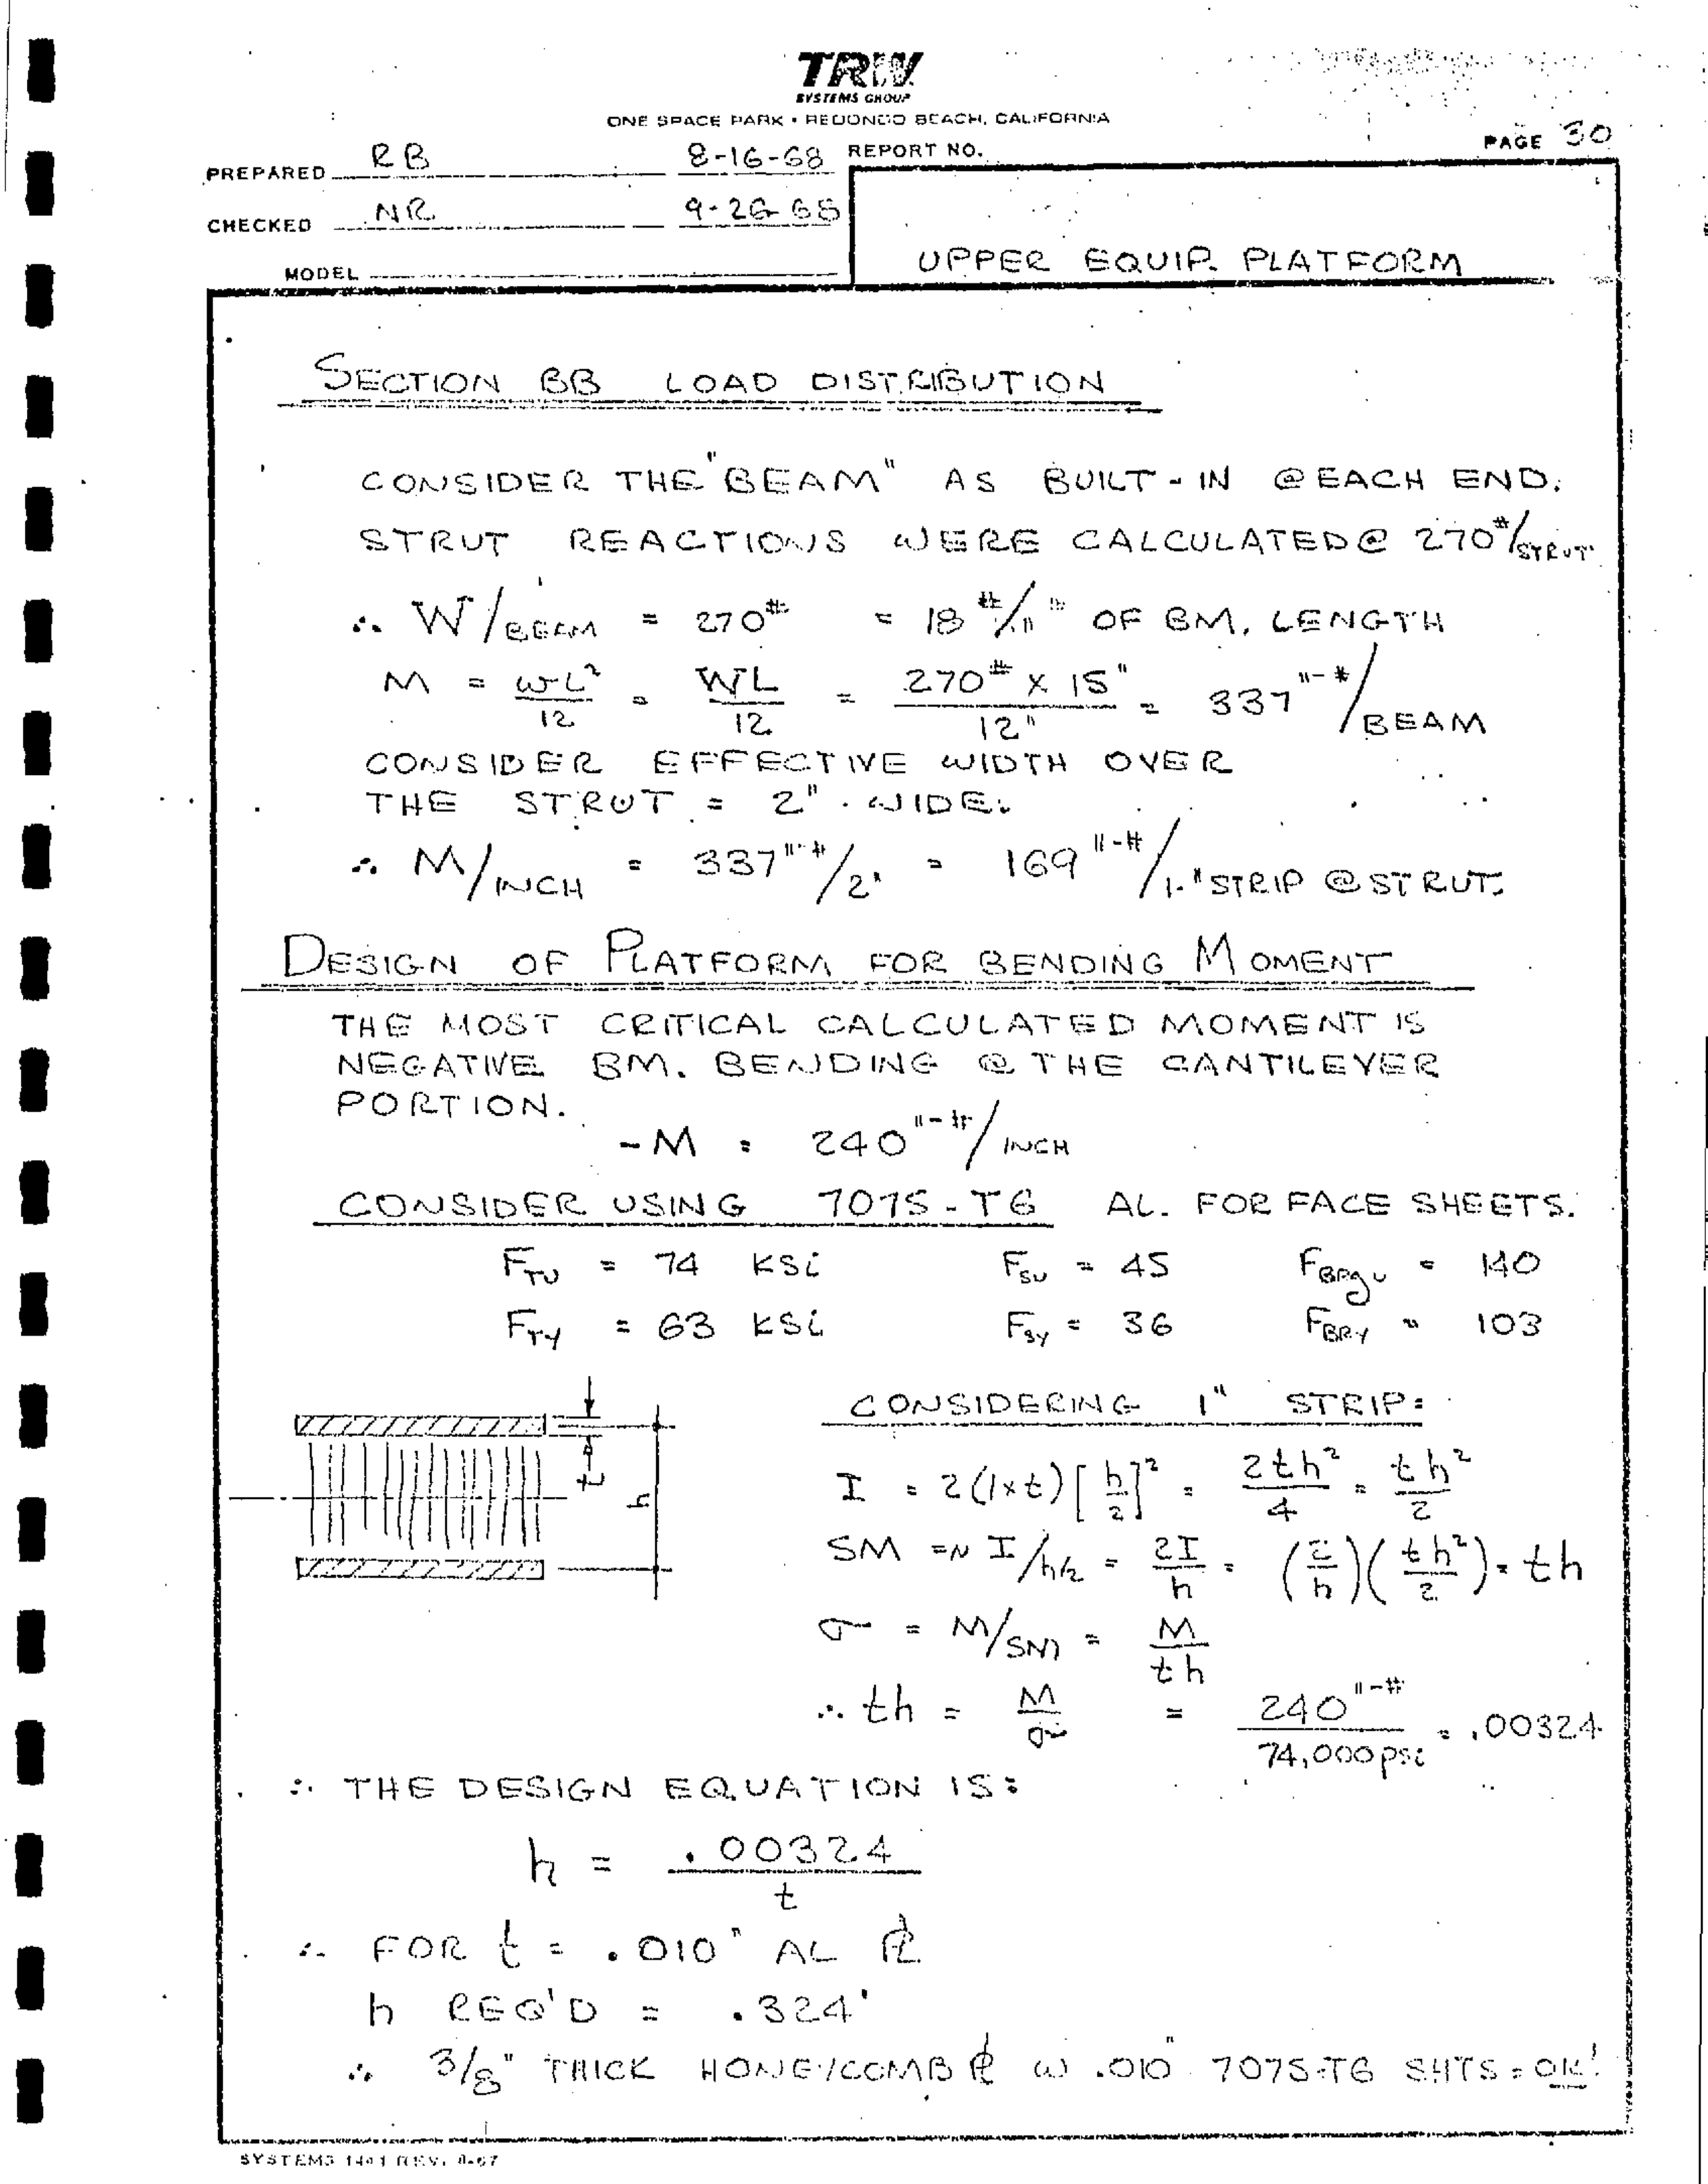 TRW
SYSTEMS GROUP
ONE SPACE PARK • REDONDO BEACH, CALIFORNIA
PAGE 30
PREPARED RB 8-16-68 REPORT NO.
CHECKED NR 9-26-68
MODEL
UPPER EQUIP. PLATFORM
SECTION BB LOAD DISTRIBUTION
CONSIDER THE "BEAM" AS BUILT-IN @ EACH END.
STRUT REACTIONS WERE CALCULATED @ 270#/STRUT
∴ W/BEAM = 270# = 18#/" OF BM. LENGTH
M = wL²/12 = WL/12 = 270# x 15"/12" = 337"-#/BEAM
CONSIDER EFFECTIVE WIDTH OVER
THE STRUT = 2" WIDE.
∴ M/INCH = 337"-#/2" = 169"-#/1" STRIP @ STRUT.
DESIGN OF PLATFORM FOR BENDING MOMENT
THE MOST CRITICAL CALCULATED MOMENT IS
NEGATIVE BM. BENDING @ THE CANTILEVER
PORTION.
-M = 240"-#/INCH
CONSIDER USING 7075-T6 AL. FOR FACE SHEETS.
FTU = 74 KSi FSU = 45 FBRGU = 140
FTY = 63 KSi FSY = 36 FBRY = 103
CONSIDERING 1" STRIP:
t
h
I = 2(1xt)[h/2]² = 2th²/4 = th²/2
SM =~ I/h/2 = 2I/h = (2/h)(th²/2) = th
σ = M/SM = M/th
∴ th = M/σ = 240"-#/74,000 psi = .00324
∴ THE DESIGN EQUATION IS:
h = .00324/t
∴ FOR t = .010" AL ℄
h REQ'D = .324"
∴ 3/8" THICK HONEYCOMB ℄ w .010" 7075-T6 SHTS = OK!
SYSTEMS 1441 REV. 8-67